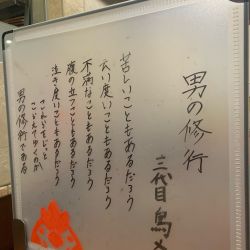 男の修行
三代目鳥
苦しいこともあるだろう
云い度いこともあるだろう
不満なこともあるだろう
腹の立つこともあるだろう
泣き度いこともあるだろう
これらをじっと
こらえてゆくのが
男の修行である